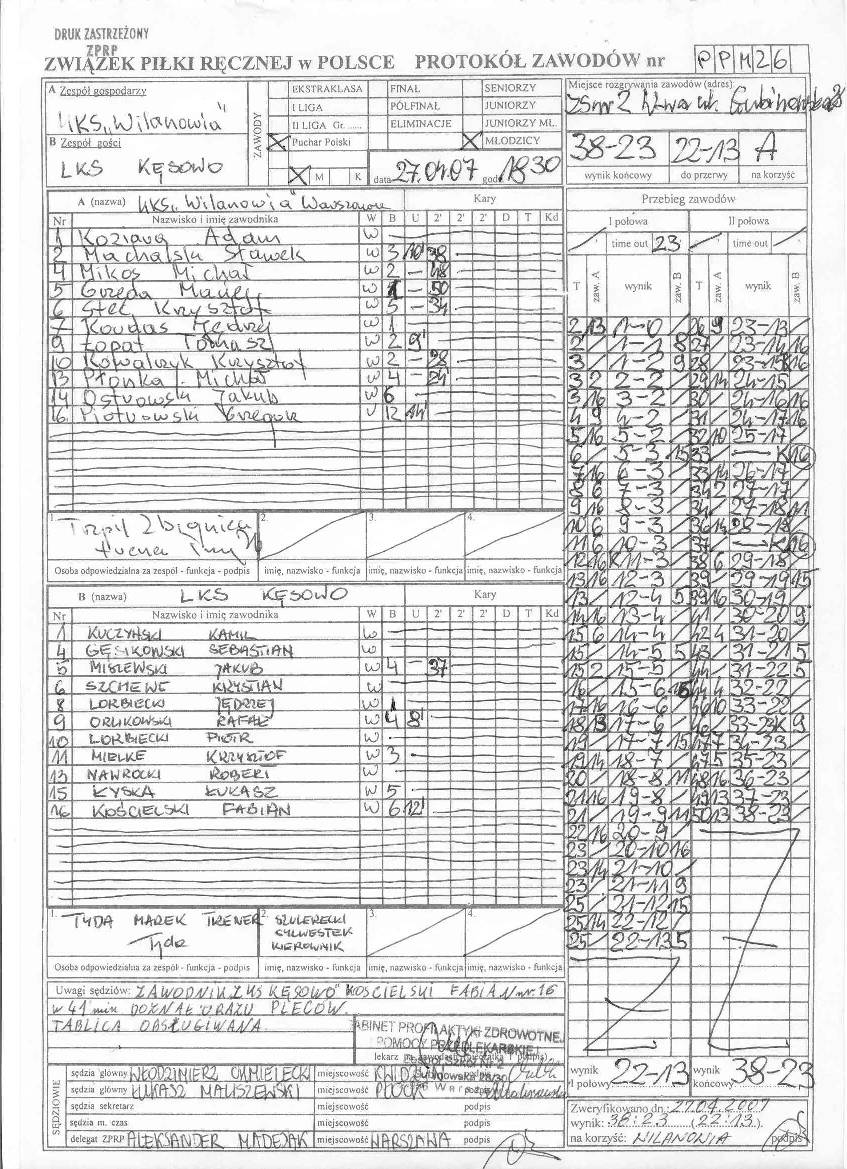 DRUK ZASTRZEŻONY
ZPRP
ZWIĄZEK PIŁKI RĘCZNEJ w POLSCE PROTOKÓŁ ZAWODÓW nr PPM26
A Zespół gospodarzy
UKS „Wilanowia"
B Zespół gości
LKS KĘSOWO
ZAWODY
EKSTRAKLASA FINAŁ SENIORZY
I LIGA PÓŁFINAŁ JUNIORZY
II LIGA Gr. ...... ELIMINACJE JUNIORZY MŁ.
Puchar Polski MŁODZICY
M K data 27.04.07 god. 18 30
Miejsce rozgrywania zawodów (adres)
38-23 22-13 A
wynik końcowy do przerwy na korzyść
A (nazwa) UKS „Wilanowia" Warszawa Kary
Nr Nazwisko i imię zawodnika W B U 2' 2' 2' D T Kd
1 Koziara Adam W
2 Machalski Sławek W 3 10' 38
4 Mikos Michał W 2 - 48
5 Grzęda Maciej W 1 - 50
6 Stec Krzysztof W 5 - 34
7 Kowdas Jędrzej W 1
9 Łopat Tomasz W 2 9'
10 Kowalczyk Krzysztof W 2 - 28
13 Płonka Michał W 4 - 24
14 Ostrowski Jakub W 6
16 Piotrowski Grzegorz W 12 44'
1. Trzpil Zbigniew 2. 3. 4.
Osoba odpowiedzialna za zespół - funkcja - podpis imię, nazwisko - funkcja imię, nazwisko - funkcja imię, nazwisko - funkcja
B (nazwa) LKS KĘSOWO Kary
Nr Nazwisko i imię zawodnika W B U 2' 2' 2' D T Kd
1 KUCZYŃSKI KAMIL W
4 GĘSIKOWSKI SEBASTIAN W
5 MISZEWSKI JAKUB W 4 - 37
6 SZCHEWE KRYSTIAN W
8 LORBIECKI JĘDRZEJ W 1
9 ORLIKOWSKI RAFAŁ W 4 8'
10 LORBIECKI PIOTR W
11 MIELKE KRZYSZTOF W 3
13 NAWROCKI ROBERT W
15 ŁYSKA ŁUKASZ W 5
16 KOŚCIELSKI FABIAN W 6 12'
1. TYDA MAREK TRENER 2. SZULERECKI 3. 4.
Tyda SYLWESTER
KIEROWNIK
Osoba odpowiedzialna za zespół - funkcja - podpis imię, nazwisko - funkcja imię, nazwisko - funkcja imię, nazwisko - funkcja
Uwagi sędziów: ZAWODNIK LKS KĘSOWO" KOŚCIELSKI FABIAN nr 16
w 41 min DOZNAŁ URAZU PLECÓW.
TABLICA OBSŁUGIWANA
GABINET PROFILAKTYKI ZDROWOTNEJ
POMOCY PRZEDLEKARSKIEJ
SĘDZIOWIE
sędzia główny WŁODZIMIERZ CHMIELECKI miejscowość KWIDZYN podpis
sędzia główny ŁUKASZ MALISZEWSKI miejscowość PŁOCK podpis
sędzia sekretarz miejscowość podpis
sędzia m. czas miejscowość podpis
delegat ZPRP ALEKSANDER MADEJAK miejscowość WARSZAWA podpis
Przebieg zawodów
I połowa II połowa
time out 23 time out
T zaw. A wynik zaw. B T zaw. A wynik zaw. B
2 13 1-0 26 9 23-13
2 1-1 8 27 23-14 16
3 1-2 9 28 23-15 16
3 2 2-2 29 14 24-15
3 16 3-2 30 24-16 16
4 9 4-2 31 24-17 16
5 16 5-2 32 10 25-17
6 5-3 15 33 K 16
7 16 6-3 33 14 26-17
8 6 7-3 34 2 27-17
9 16 8-3 34 27-18 11
10 6 9-3 36 14 28-18
11 6 10-3 37 K 16
12 16 K 11-3 38 6 29-18
13 16 12-3 39 29-19 15
13 12-4 5 39 16 30-19
14 16 13-4 41 30-20 9
15 6 14-4 42 4 31-20
15 14-5 5 43 31-21 5
15 2 15-5 44 31-22 5
16 15-6 15 44 4 32-22
17 16 16-6 46 10 33-22
18 13 17-6 46 33-23 K 9
19 17-7 15 47 7 34-23
19 14 18-7 47 5 35-23
20 18-8 11 48 16 36-23
21 16 19-8 49 13 37-23
21 19-9 11 50 13 38-23
22 16 20-9
23 20-10 16
23 14 21-10
23 21-11 9
25 21-12 15
25 14 22-12
25 22-13 5
wynik I połowy 22-13 wynik końcowy: 38-23
Zweryfikowano dn.: 27.04.2007
wynik: 38:23 (22:13)
na korzyść: WILANOWIA podpis